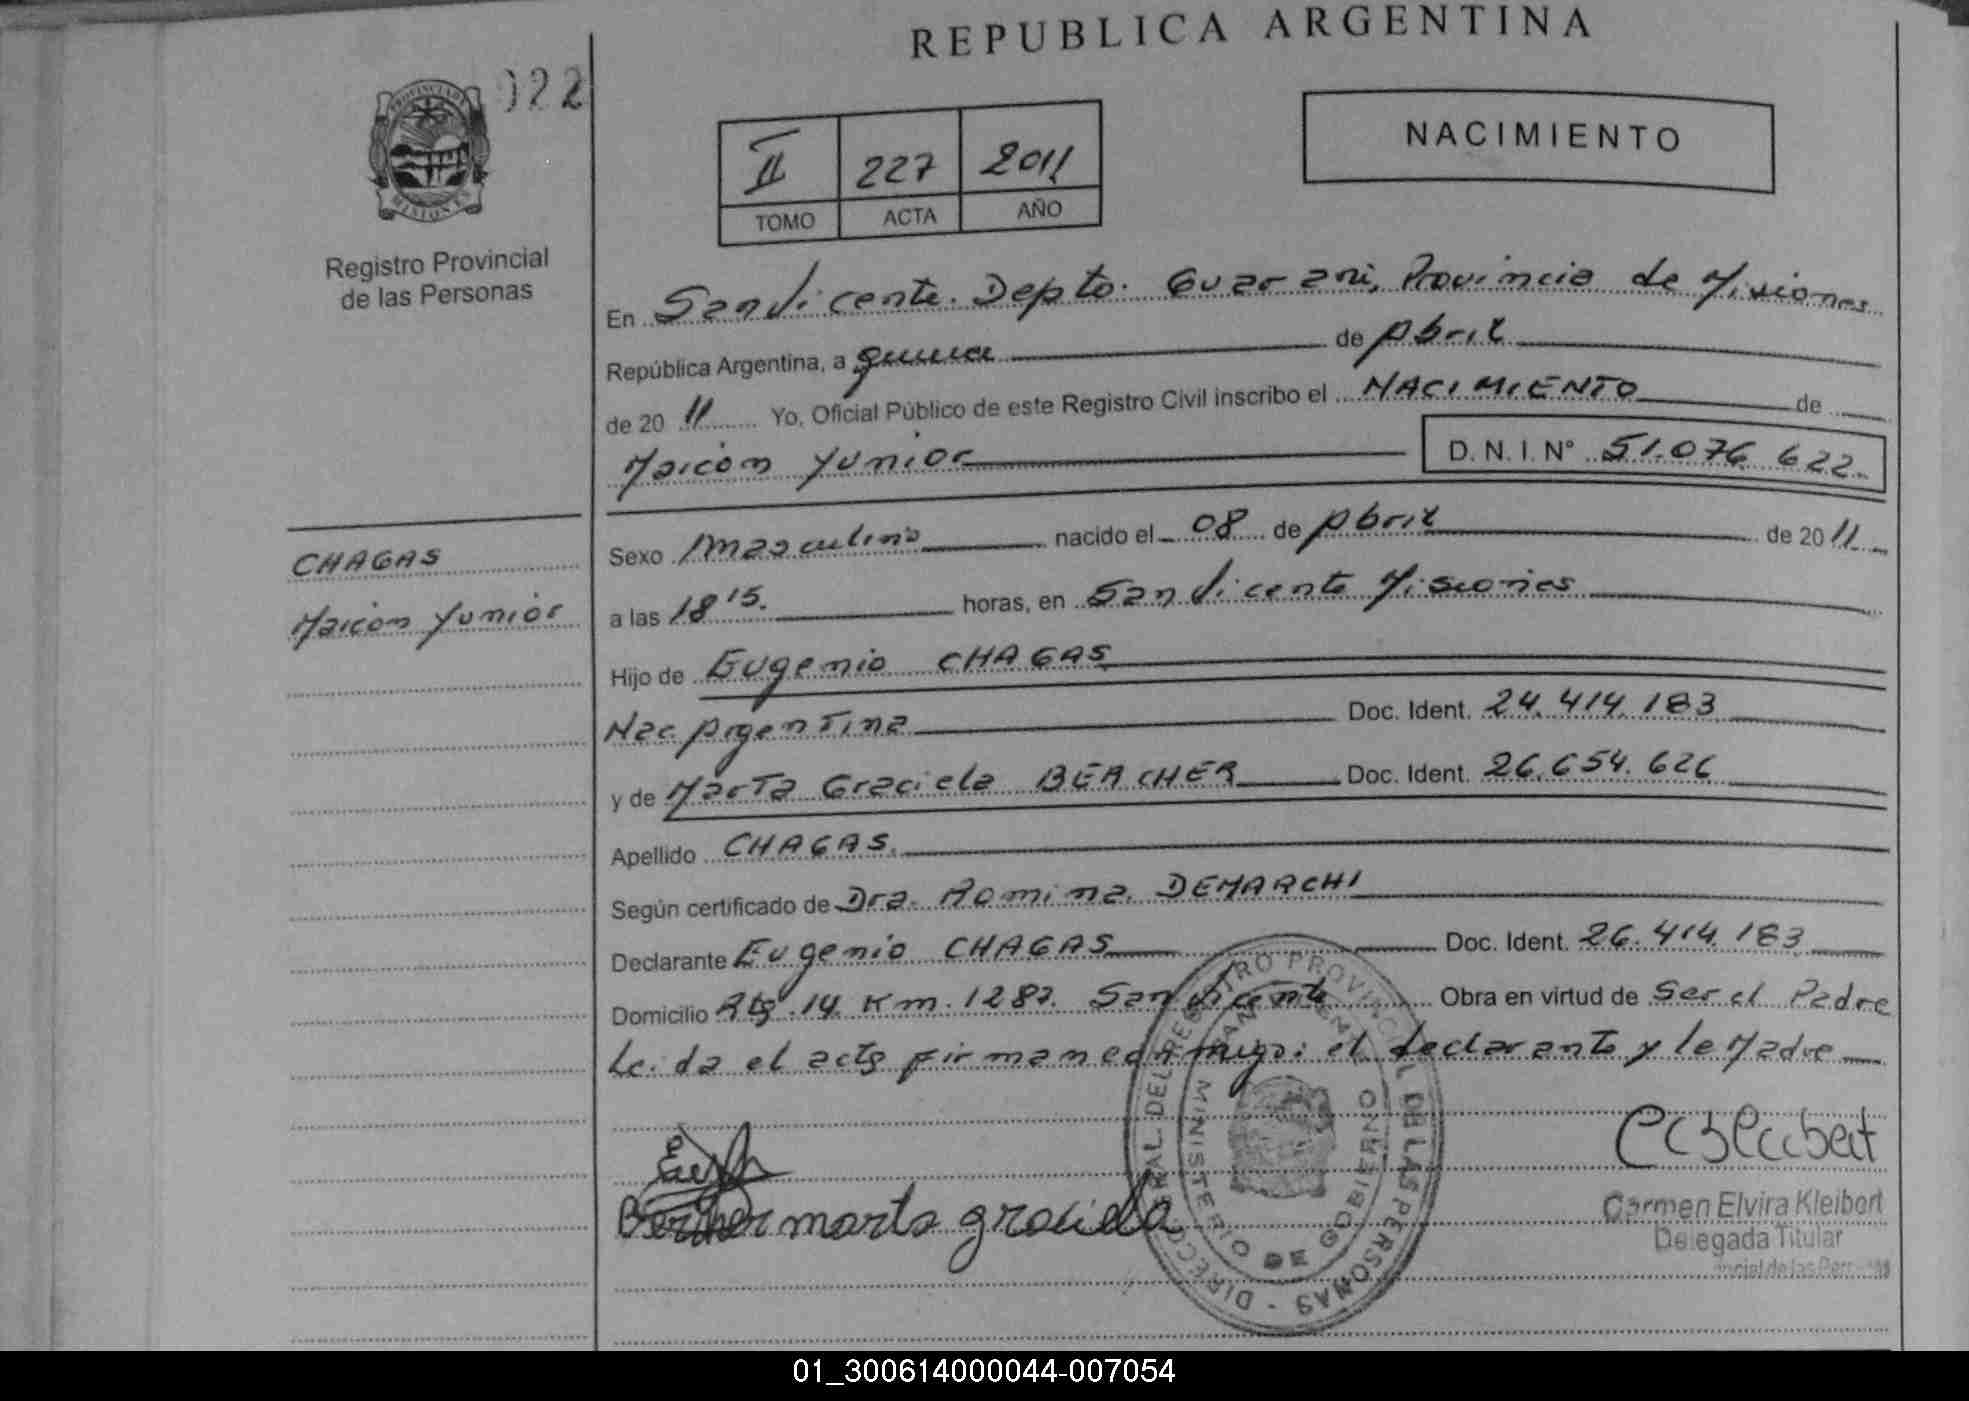 REPUBLICA ARGENTINA
022
PROVINCIA DE MISIONES
Registro Provincial
de las Personas
II 227 2011
TOMO ACTA AÑO
NACIMIENTO
En San Vicente. Depto. Guarani, Provincia de Misiones
República Argentina, a quince de Abril
de 20 11 Yo, Oficial Público de este Registro Civil inscribo el NACIMIENTO de
Maicon Yunior D.N.I. N° 51.076.622
CHAGAS
Maicon Yunior
Sexo Masculino nacido el 08 de Abril de 20 11
a las 18 15. horas, en San Vicente Misiones
Hijo de Eugenio CHAGAS
Nac Argentina Doc. Ident. 24.414.183
y de Marta Graciela BERCHER Doc. Ident. 26.654.626
Apellido CHAGAS.
Según certificado de Dra. Romina. DEMARCHI
Declarante Eugenio CHAGAS Doc. Ident. 26.414.183
Domicilio Rta. 14. Km. 1282. San Vicente Obra en virtud de Ser el Padre
Leida el acta firman conmigo: el declarante y la Madre
Bercher marta graciela
Carmen Elvira Kleibert
Delegada Titular
DIRECC GRAL. DEL REGISTRO PROVINCIAL DE LAS PERSONAS
MINISTERIO DE GOBIERNO
01_300614000044-007054